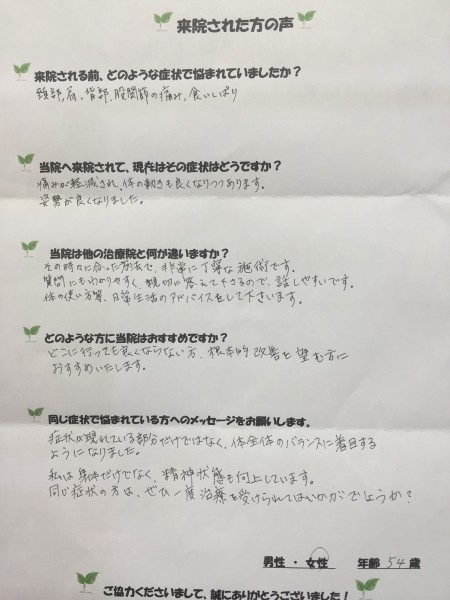 来院された方の声
来院される前、どのような症状で悩まれていましたか？
頚部、肩、背部、股関節の痛み、食いしばり
当院へ来院されて、現在はその症状はどうですか？
痛みが軽減され、体の動きも良くなりつつあります。
姿勢が良くなりました。
当院は他の治療院と何が違いますか？
その時々に合った方法で、非常に丁寧な施術です。
質問にもわかりやすく、親切に答えて下さるので、話しやすいです。
体の使い方等、日常生活のアドバイスをして下さいます。
どのような方に当院はおすすめですか？
どこに行っても良くならない方、根本的改善を望む方に
おすすめいたします。
同じ症状で悩まれている方へのメッセージをお願いします。
症状が現れている部分だけではなく、体全体のバランスに着目する
ようになりました。
私は身体だけでなく、精神状態も向上しています。
同じ症状の方は、ぜひ一度治療を受けられてはいかがでしょうか？
男性 ・ 女性 年齢 54 歳
ご協力くださいまして、誠にありがとうございました！